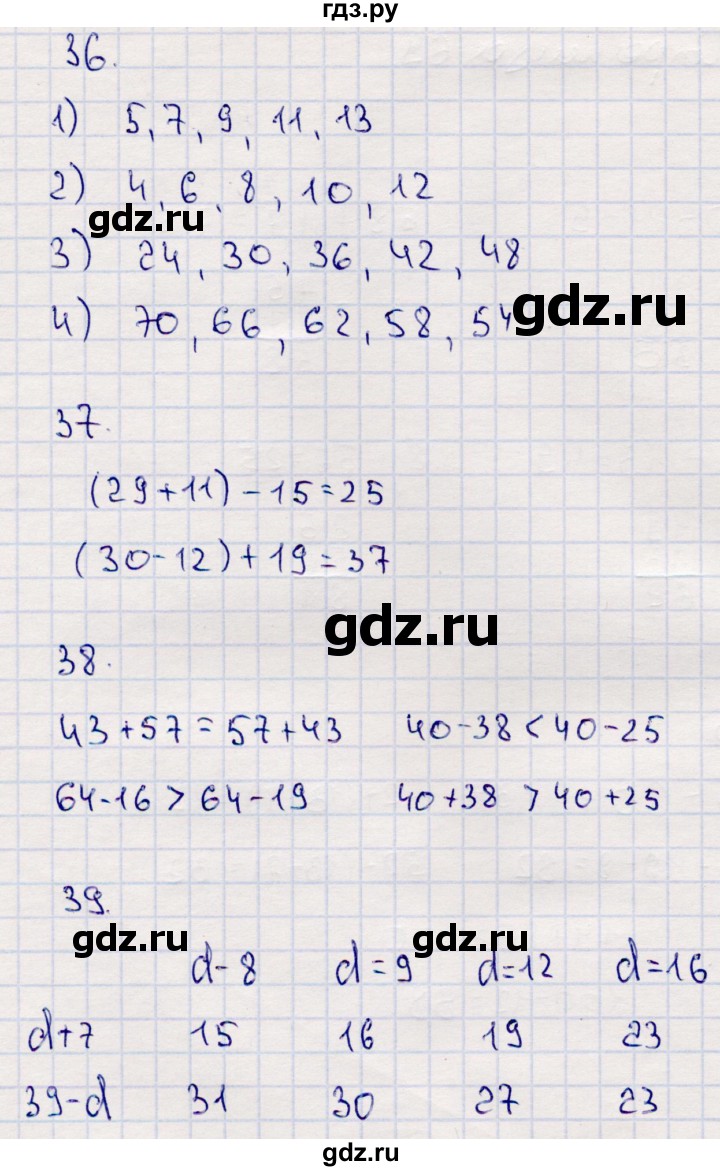 гдз.ру
36.
1) 5, 7, 9, 11, 13
2) 4, 6, 8, 10, 12
gdz.ru
3) 24, 30, 36, 42, 48
gdz.ru
4) 70, 66, 62, 58, 54
37.
(29+11)-15=25
(30-12)+19=37
gdz.ru
38.
43+57=57+43 40-38<40-25
64-16>64-19 40+38>40+25
39.
gdz.ru gdz.ru
d-8 d=9 d=12 d=16
d+7 15 16 19 23
39-d 31 30 27 23
gdz.ru